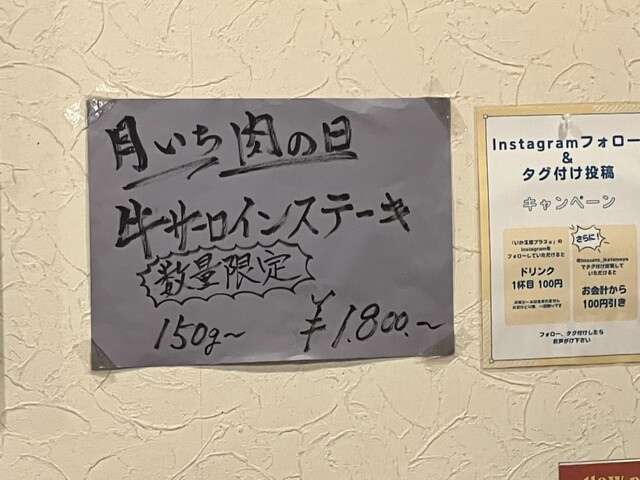 月いち肉の日
牛サーロインステーキ
数量限定
150g～ ¥1.800.～
Instagramフォロー
&
タグ付け投稿
キャンペーン
Instagramを
フォローしていただけると
ドリンク
1杯目100円
さらに!
でタグ付け投稿して
いただけると
お会計から
100円引き
フォロー、タグ付けしたら
お声がけ下さい